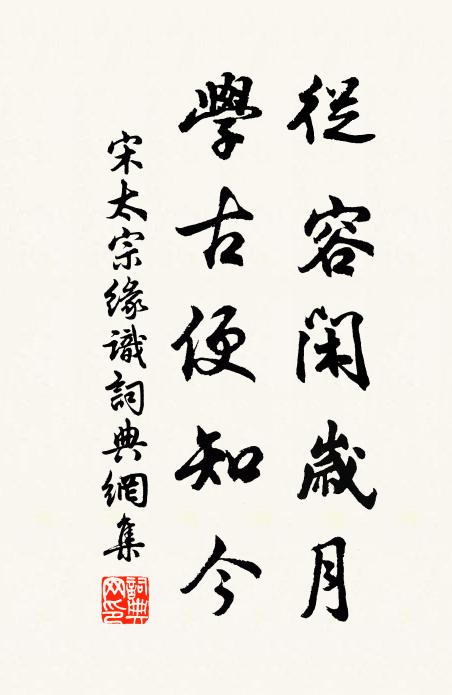 從容閑歲月
學古便知今
宋太宗緣識詞典網集
詞典網印